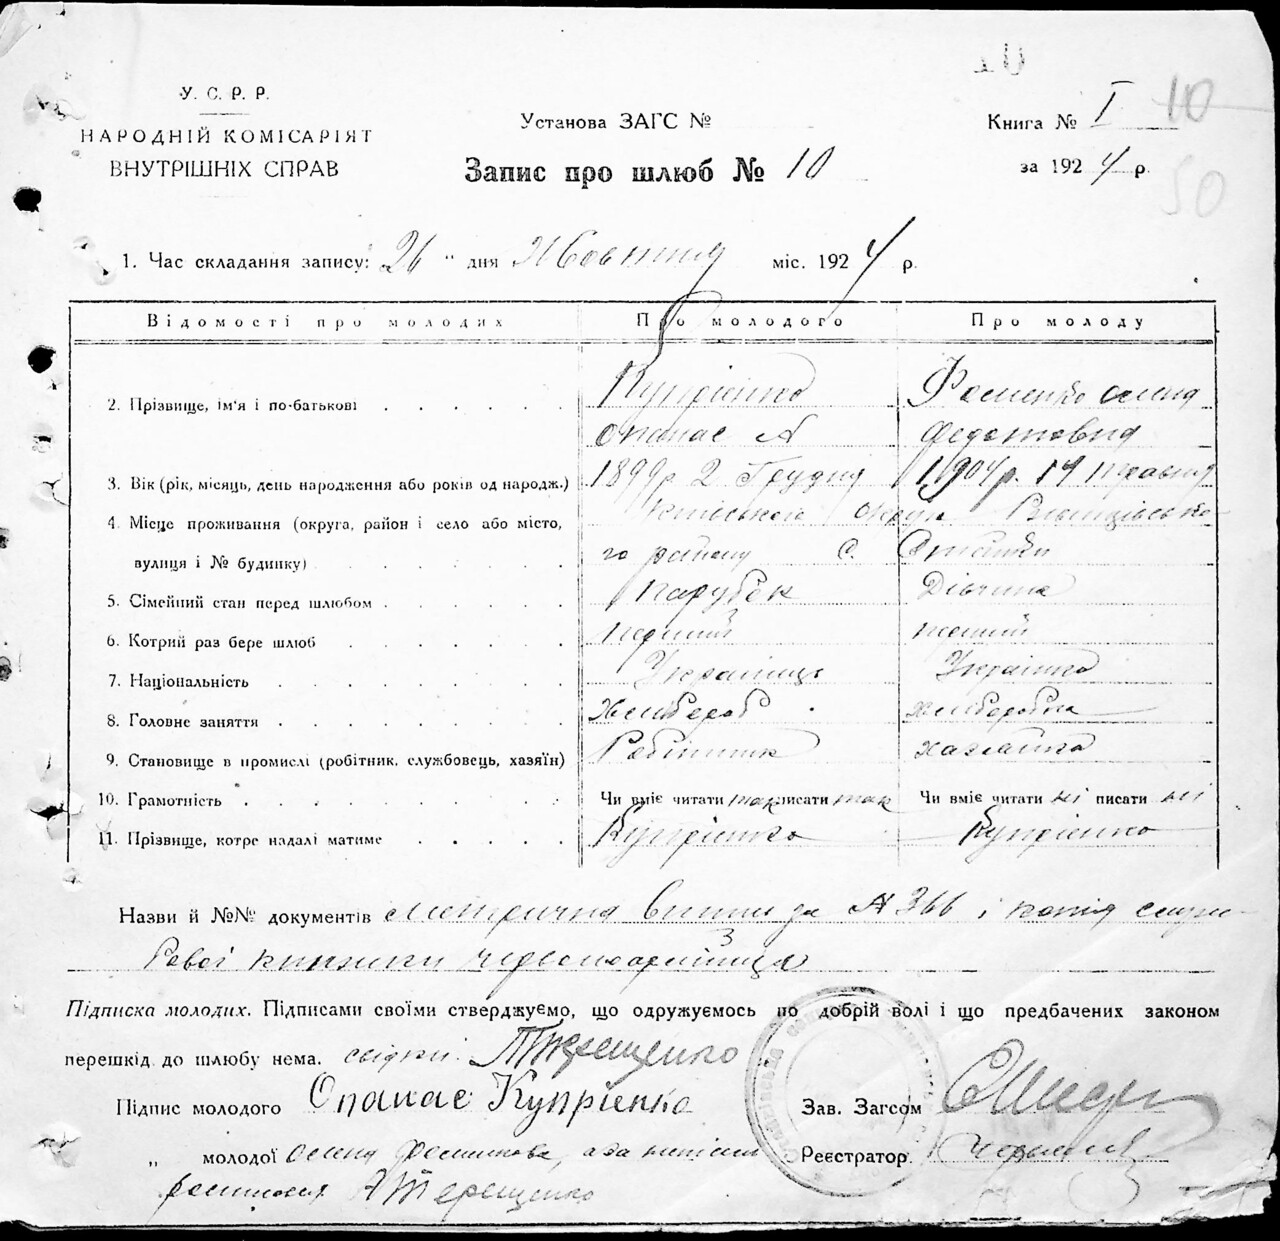 У. С. Р. Р.
НАРОДНІЙ КОМІСАРІЯТ
ВНУТРІШНІХ СПРАВ
Установа ЗАГС №
Запис про шлюб № 10
Книга № I 10
за 1924 р.
50
1. Час складання запису: 26 " дня Жовтня міс. 1924 р.
Відомості про молодих Про молодого Про молоду
2. Прізвище, ім'я і по-батькові Купрієнко Фоменко Олена
Опанас А Федотовна
3. Вік (рік, місяць, день народження або років од народж.) 1899р 2 Грудня 1904р. 14 травня
4. Місце проживання (округа, район і село або місто, округи
вулиця і № будинку) го району С.
5. Сімейний стан перед шлюбом Парубок Дівчина
6. Котрий раз бере шлюб перший перший
7. Національність Українець Українка
8. Головне заняття Хлібороб Хлібородка
9. Становище в промислі (робітник, службовець, хазяїн) Робітник хазяйка
10. Грамотність Чи вміє читати так писати так Чи вміє читати ні писати ні
11. Прізвище, котре надалі матиме Купрієнко Купрієнко
Назви й №№ документів Метрична за № 366 і копія
книжки червоноармійця
Підписка молодих. Підписами своїми стверджуємо, що одружуємось по добрій волі і що предбачених законом
перешкід до шлюбу нема. свідки: Терещенко
Підпис молодого Опанас Купрієнко Зав. Загсом
" молодої Олена Реєстратор
Терещенко